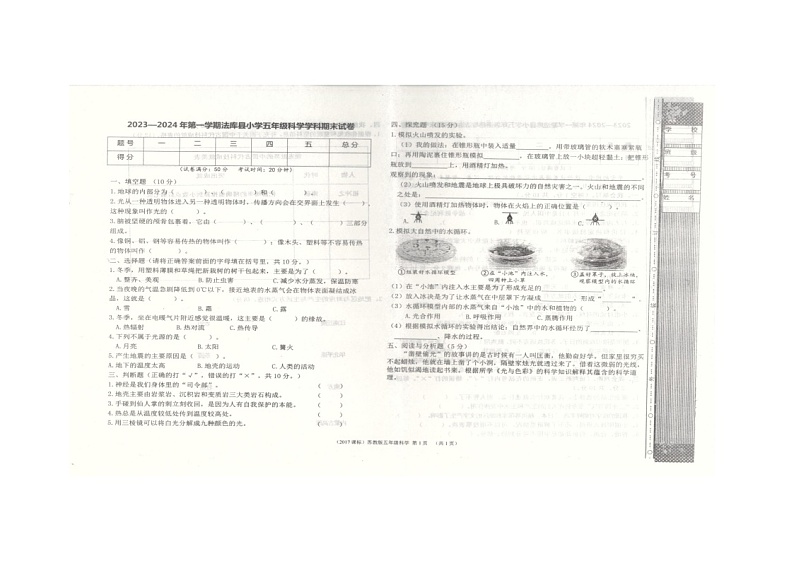 2023—2024年第一学期法库县小学五年级科学学科期末试卷
题号 一 二 三 四 五 总分
得分
(试卷满分：50分 考试时间：20分钟)
一、填空题（10分）
1.地球的内部分为（ ）、（ ）和（ ）。
2.光从一种透明物体进入另一种透明物体时，传播方向会在交界面上发生（ ），
这种现象叫作光的（ ）。
3.脑被坚硬的颅骨包裹着，它由（ ）、（ ）、（ ）三部分
组成。
4.像铜、铝、钢等容易传热的物体叫作（ ）；像木头、塑料等不容易传热
的物体叫作（ ）。
二、选择题（请将正确答案前面的字母填在括号里，共10分。）
1.冬季，用塑料薄膜和草绳把新栽树的树干包起来，主要是为了（ ）。
A.整齐、美观 B.防止虫害 C.减少水分蒸发，保温防寒
2.当夜晚的气温急剧降低到0℃以下，接近地表的水蒸气会在物体表面凝结成冰
晶，这就是（ ）。
A.雪 B.霜 C.露
3.冬季，坐在电暖气片附近感觉很温暖，这主要是（ ）的缘故。
A.热辐射 B.热对流 C.热传导
4.下列不属于光源的是（ ）。
A.月亮 B.太阳 C.萤火
5.产生地震的主要原因是（ ）。
A.地下的温度太高 B.地壳的运动 C.人类的活动
三、判断题（正确的打“√”，错误的打“×”，共10分。）
1.神经是我们身体里的“司令部”。 （ ）
2.地壳主要由岩浆岩、沉积岩和变质岩三大类岩石构成。 （ ）
3.手碰到仙人掌的刺立刻收回，是因为人有自我保护的本能。 （ ）
4.热总是从温度较低处传到温度较高处。 （ ）
5.用三棱镜可以将白光分解成九种颜色的光。 （ ）
四、探究题（15分）
1.模拟火山喷发的实验。
（1）我的做法：在锥形瓶中装入适量 ，用带玻璃管的软木塞塞紧瓶
口；再用陶泥裹住锥形瓶模拟 ，在玻璃管上放一小块超轻黏土；把锥形
瓶放到 上，用酒精灯加热。
观察到的现象：
（2）火山喷发和地震是地球上极具破坏力的自然灾害之一，火山和地震的不同
之处是：
（3）使用酒精灯加热物体时，物体在火焰上的正确位置是（ ）。
A. B. C.
2.模拟大自然中的水循环。
①组装好水循环模型 ②在“小池”内注入水， ③盖好罩子，放上冰块，
（1）在“小池”内注入水主要是为了形成充足的 。
（2）放入冰块是为了让水蒸气在中层罩下方凝成 ，形成“ ”。
（3）水循环模型内部的水蒸气来自“小池”中的水和植物的（ ）。
A.光合作用 B.呼吸作用 C.蒸腾作用
（4）根据模拟水循环的实验得出结论：自然界中的水循环经历了 、
、降水的过程。
五、阅读与分析题（5分）
“凿壁偷光”的故事讲的是古时候有一人叫匡衡，他勤奋好学，但家里很穷买
不起蜡烛，他就在墙上凿了个小洞，隔壁家烛光就透过来了，借着这微弱的光线，
他如饥似渴地读起书来。根据所学《光与色彩》的科学知识解释其蕴含的科学道
理。
（2017课标）苏教版五年级科学 第1页 （共1页）
学校
班级
考号
姓名